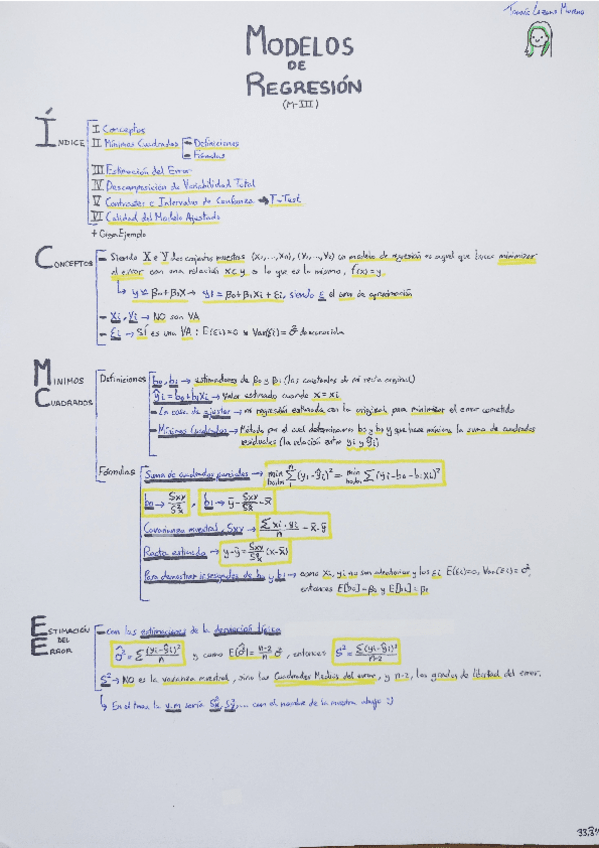 Tomás Lozano Moreno
MODELOS
DE
REGRESIÓN
(M-III)
ÍNDICE
I Conceptos
II Mínimos Cuadrados - Definiciones
- Fórmulas
III Estimación del Error
IV Descomposición de Variabilidad Total
V Contrastes e Intervalos de Confianza → T-Test
VI Calidad del Modelo Ajustado
+ Ejemplo
CONCEPTOS
- Siendo X e Y dos conjuntos muestras (X1,...,Xn), (Y1,...,Yn) un modelo de regresión es aquel que busca minimizar
el error con una relación x e y o lo que es lo mismo, f(x)=y.
y = β0+β1X → yi = β0+β1Xi + εi, siendo ε el error de aproximación
- Xi, Yi → NO son VA
- εi → SÍ es una VA: E(εi)=0 y Var(εi)=σ² desconocida
MINIMOS CUADRADOS
Definiciones
- b0, b1 → estimadores de β0 y β1 (las constantes de mi recta original)
- ŷi = b0+b1Xi → Valor estimado cuando x = xi
- mi regresión estimada con la original para minimizar el error cometido
- Mínimos Cuadrados → Método por el cual determinamos b0 y b1 que hace mínima la suma de cuadrados
residuales (la relación entre yi y ŷi)
Fórmulas
Suma de cuadrados → min b0,b1 Σ(yi-ŷi)² = min b0,b1 Σ(yi-b0-b1xi)²
→ Sxy/S²x , → ȳ - Sxy/S²x · x̄
Covarianza muestral, Sxy → Σxi·yi/n - x̄·ȳ
Recta estimada → y-ȳ = Sxy/S²x (x-x̄)
Para demostrar insesgadez de b0 y b1 → como xi, yi no son aleatorias y los εi E(εi)=0, Var(εi)=σ²,
entonces E[b0]=β0 y E[b1]=β1
ESTIMACIÓN DEL ERROR
- con las estimaciones de la desviación típica
σ̂² = Σ(yi-ŷi)²/n y como E[σ̂²] = n-2/n σ², entonces S² = Σ(yi-ŷi)²/n-2
S² → NO es la varianza muestral, sino los Cuadrados Medios del error, y n-2, los grados de libertad del error.
En el tema la v.m sería S²x, S²y,... con el nombre de la muestra abajo :)